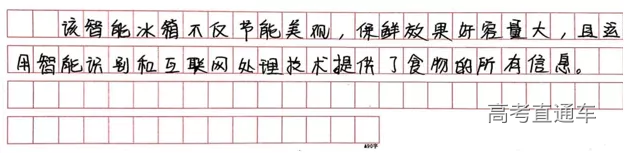 该智能冰箱不仅节能美观，保鲜效果好容量大，且运
用智能识别和互联网处理技术提供了食物的所有信息。
高考直通车